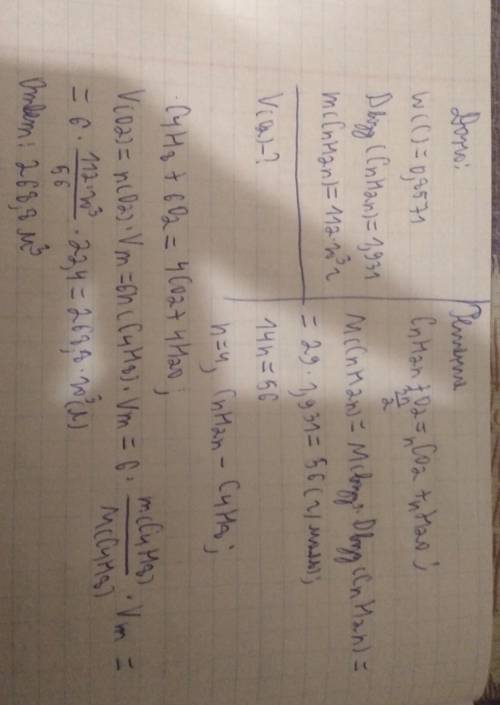 Дано:
W(C)=0,8571
Dвозд(CnH2n)=1,931
m(CnH2n)=112·10³г
V(O2)-?
Решение
CnH2n + 3n/2 O2 = nCO2 + nH2O;
M(CnH2n)=Mвозд·Dвозд(CnH2n)=
= 29·1,931=56(г/моль);
14n=56
n=4, CnH2n - C4H8;
C4H8 + 6O2 = 4CO2 + 4H2O;
V(O2)=n(O2)·Vm=6n(C4H8)·Vm = 6· m(C4H8)/M(C4H8) ·Vm =
= 6· 112·10³/56 ·22,4=268,8·10³(л)
Ответ: 268,8 м³